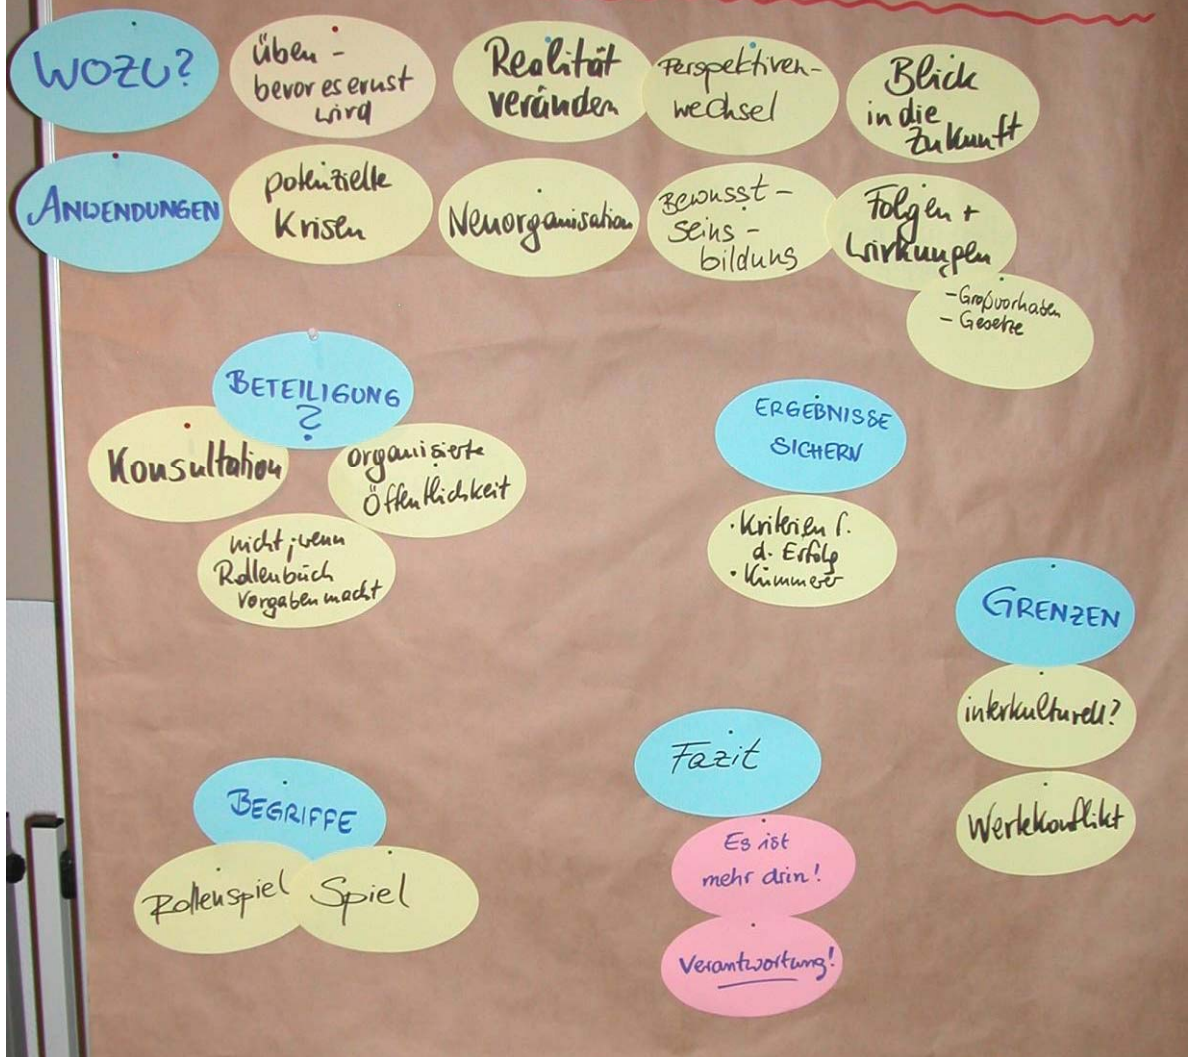 WOZU?
Üben -
bevor es ernst
wird
Realität
verändern
Perspektiven-
wechsel
Blick
in die
Zukunft
ANWENDUNGEN
potenzielle
Krisen
Neuorganisation
Bewusst-
seins-
bildung
Folgen +
Wirkungen
- Großvorhaben
- Gesetze
BETEILIGUNG
?
Konsultation
organisierte
Öffentlichkeit
nicht, wenn
Rollenbuch
Vorgaben macht
ERGEBNISSE
SICHERN
• Kriterien f.
d. Erfolg
• Kümmerer
GRENZEN
interkulturell?
Wertekonflikt
Fazit
Es ist
mehr drin!
Verantwortung!
BEGRIFFE
Rollenspiel
Spiel